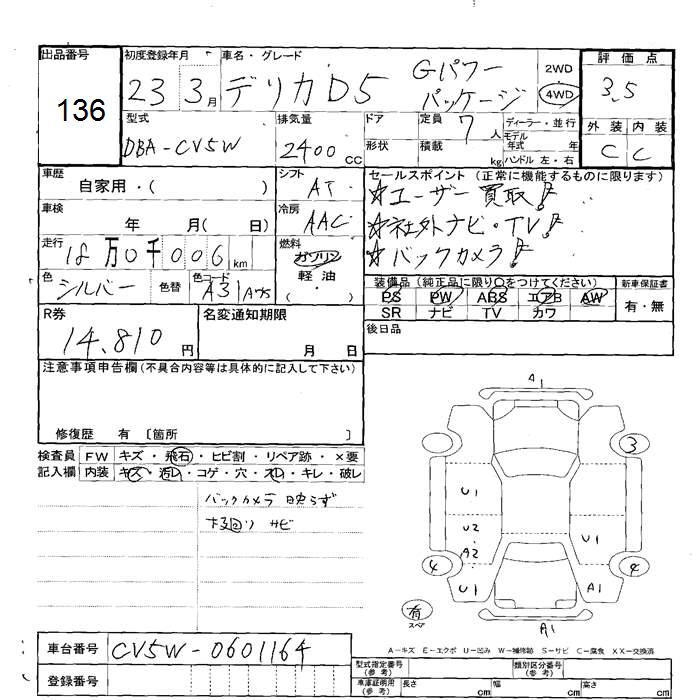 出品番号
136
初度登録年月
23 3月
車名・グレード
デリカD5 Gパワーパッケージ
2WD
4WD
評価点
3.5
外装 内装
C C
型式
DBA-CV5W
排気量
2400CC
ドア
定員 7人
形状
積載 kg
ディーラー・並行
モデル年式 年
ハンドル 左・右
車歴
自家用・( )
シフト
AT
セールスポイント(正常に機能するものに限ります)
☆ユーザー買取!
☆社外ナビ・TV!
☆バックカメラ!
車検
年 月( 日)
冷房
AAC
走行
18万0千006km
燃料
ガソリン
軽・油
( ・ )
色
シルバー
色替
色コード
A31
装備品(純正品に限り○をつけてください)
PS PW ABS エアB AW
SR ナビ TV カワ
新車保証書
有・無
後日品
R券
14,810円
名変通知期限
月 日
注意事項申告欄(不具合内容等は具体的に記入して下さい)
修復歴 有 〔箇所 〕
検査員記入欄
FW キズ・飛石・ヒビ割・リペア跡・×要
内装 キズ・汚レ・コゲ・穴・スレ・キレ・破レ
バックカメラ映らず
下廻りサビ
A1
3
U1
U2
A2
U1
4
U1
4
U1
A1
有
スペア
A1
A-キズ E-エクボ U-凹み W-補修跡 S-サビ C-腐食 XX-交換済
車台番号
CV5W-0601164
登録番号
型式指定番号
(参考)
類別区分番号
(参考)
車庫証明用
(参考)
長さ cm
幅 cm
高さ cm